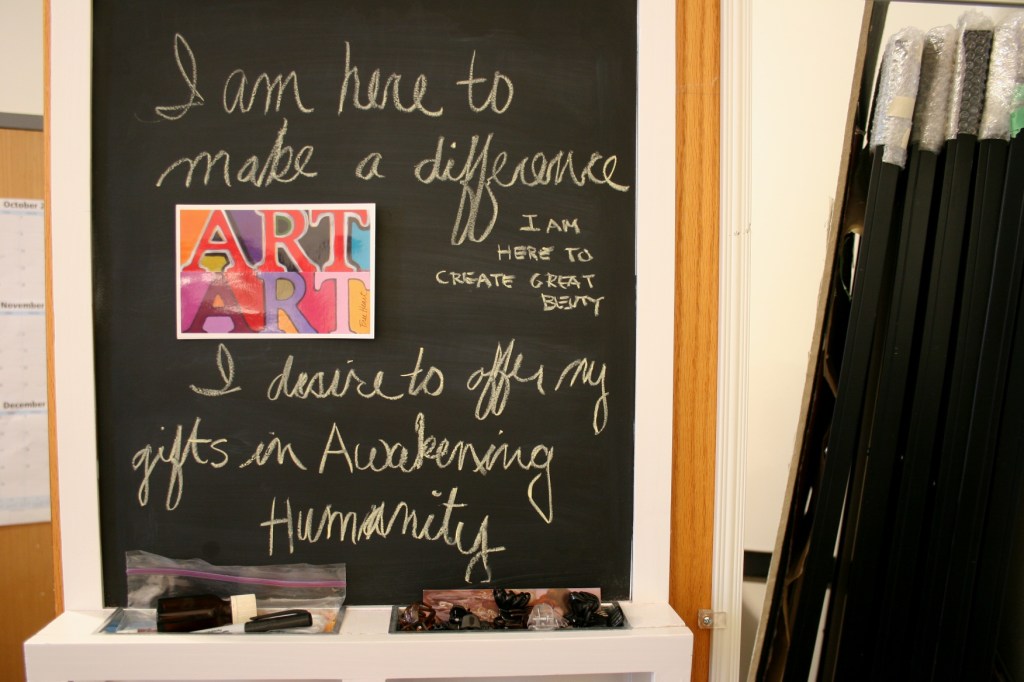 I am here to
make a difference
ART
ART
I AM
HERE TO
CREATE GREAT
BEUTY
I desire to offer my
gifts in Awakening
Humanity
October 2
November
December